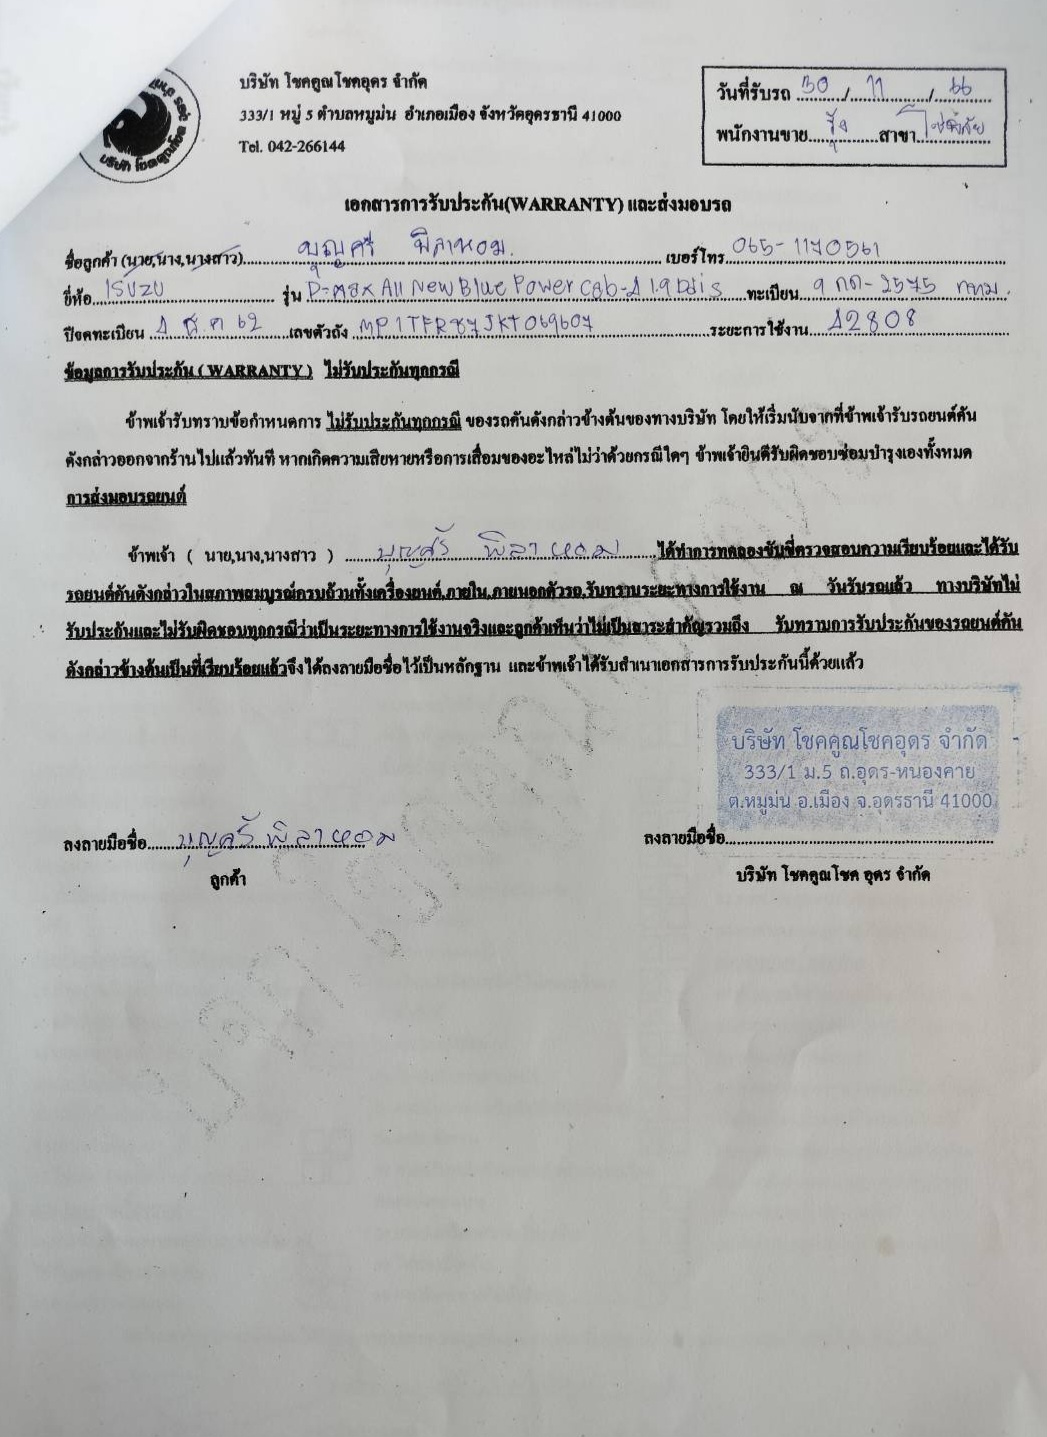 บริษัท โชคคูณโชคอุดร จำกัด
333/1 หมู่ 5 ตำบลหมูม่น อำเภอเมือง จังหวัดอุดรธานี 41000
Tel. 042-266144
วันที่รับรถ 30/11/66
พนักงานขาย รุ่ง สาขา
บริษัท โชคคูณโชค
เอกสารการรับประกัน(WARRANTY) และส่งมอบรถ
ชื่อลูกค้า (นาย,นาง,นางสาว) บุญศรี พิลาหอม เบอร์โทร 065-1170561
ยี่ห้อ ISUZU รุ่น D-max All New Blue Power Cab-4 1.9 ทะเบียน 9 กด-2575 กทม.
ปีจดทะเบียน 1 ส.ค 62 เลขตัวถัง MP1TFR87JKT069607 ระยะการใช้งาน 12808
ข้อมูลการรับประกัน ( WARRANTY ) ไม่รับประกันทุกกรณี
ข้าพเจ้ารับทราบข้อกำหนดการ ไม่รับประกันทุกกรณี ของรถคันดังกล่าวข้างต้นของทางบริษัท โดยให้เริ่มนับจากที่ข้าพเจ้ารับรถยนต์คัน
ดังกล่าวออกจากร้านไปแล้วทันที หากเกิดความเสียหายหรือการเสื่อมของอะไหล่ไม่ว่าด้วยกรณีใดๆ ข้าพเจ้ายินดีรับผิดชอบซ่อมบำรุงเองทั้งหมด
การส่งมอบรถยนต์
ข้าพเจ้า ( นาย,นาง,นางสาว ) บุญศรี พิลาหอม ได้ทำการทดลองขับขี่ตรวจสอบความเรียบร้อยและได้รับ
รถยนต์คันดังกล่าวในสภาพสมบูรณ์ครบถ้วนทั้งเครื่องยนต์,ภายใน,ภายนอกตัวรถ,รับทราบระยะทางการใช้งาน ณ วันรับรถแล้ว ทางบริษัทไม่
รับประกันและไม่รับผิดชอบทุกกรณีว่าเป็นระยะทางการใช้งานจริงและลูกค้าเห็นว่าไม่เป็นสาระสำคัญรวมถึง รับทราบการรับประกันของรถยนต์คัน
ดังกล่าวข้างต้นเป็นที่เรียบร้อยแล้วจึงได้ลงลายมือชื่อไว้เป็นหลักฐาน และข้าพเจ้าได้รับสำเนาเอกสารการรับประกันนี้ด้วยแล้ว
บริษัท โชคคูณโชคอุดร จำกัด
333/1 ม.5 ถ.อุดร-หนองคาย
ต.หมูม่น อ.เมือง จ.อุดรธานี 41000
ลงลายมือชื่อ บุญศรี พิลาหอม ลงลายมือชื่อ
ลูกค้า บริษัท โชคคูณโชค อุดร จำกัด